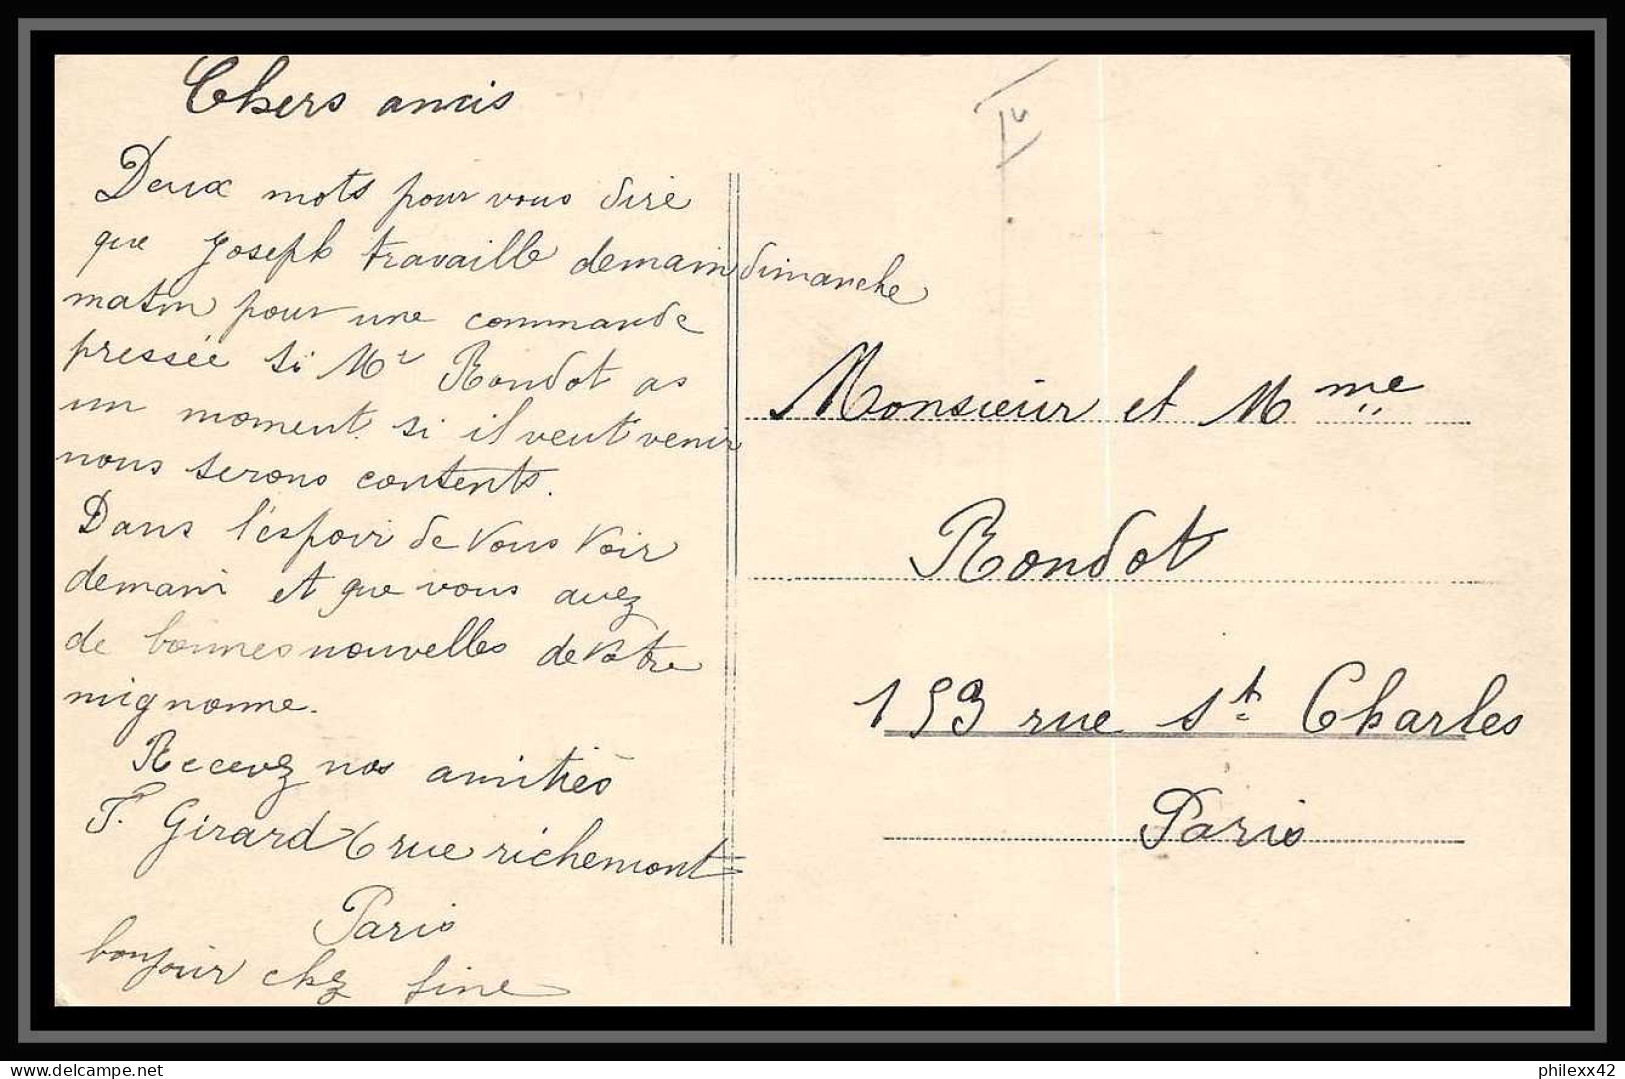 Chers amis
Deux mots pour vous dire
que Joseph travaille demain dimanche
matin pour une commande
pressée si Mr Rondot as
un moment si il veut venir
nous serons contents.
Dans l'espoir de vous voir
demain et que vous avez
de bonnes nouvelles de votre
mignonne.
Recevez nos amitiés
F. Girard 6 rue richemont
Paris
bonjour chez fine
Monsieur et Mme
Rondot
153 rue St Charles
Paris
philexx42